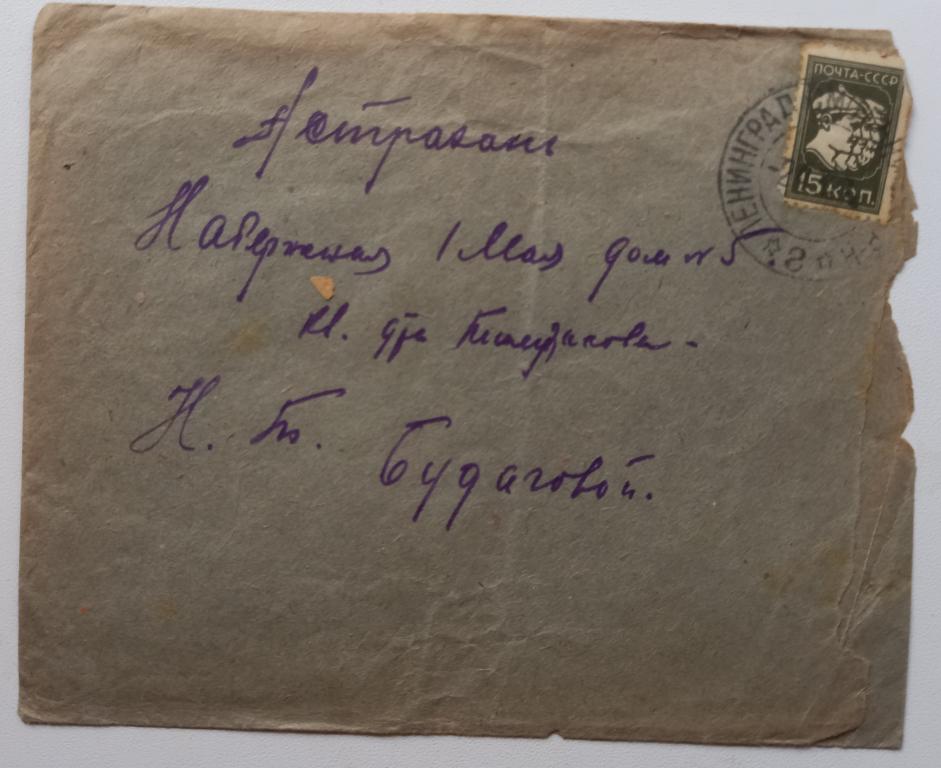 ПОЧТА-СССР
15 КОП.
ЛЕНИНГРАД
Астрахань
Набережная 1 Мая дом № 5.
кв. д-ра
Н. Б. Будаговой.